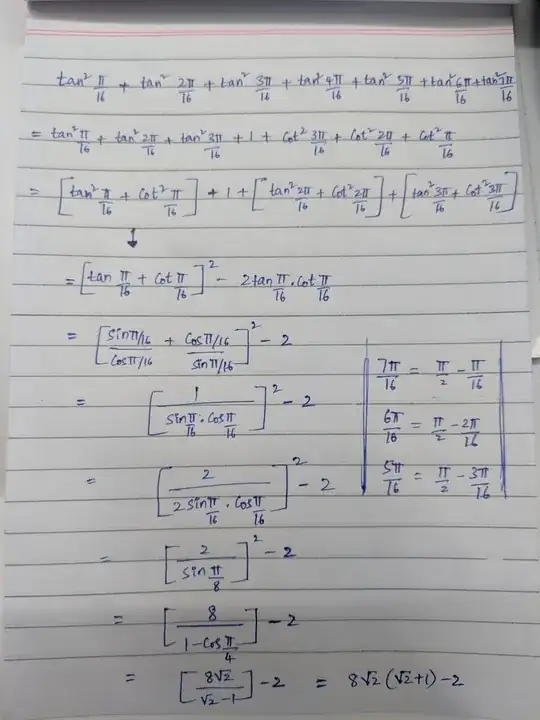 tan² π/16 + tan² 2π/16 + tan² 3π/16 + tan² 4π/16 + tan² 5π/16 + tan² 6π/16 + tan² 7π/16
= tan² π/16 + tan² 2π/16 + tan² 3π/16 + 1 + Cot² 3π/16 + Cot² 2π/16 + Cot² π/16
= [tan² π/16 + Cot² π/16] + 1 + [tan² 2π/16 + Cot² 2π/16] + [tan² 3π/16 + Cot² 3π/16]
↓
= [tan π/16 + Cot π/16]² - 2tan π/16 . Cot π/16
= [Sinπ/16 / Cosπ/16 + Cosπ/16 / Sinπ/16]² - 2
= [1 / Sin π/16 . Cos π/16]² - 2
= [2 / 2 Sin π/16 . Cos π/16]² - 2
= [2 / Sin π/8]² - 2
= [8 / 1 - Cos π/4] - 2
= [8√2 / √2 - 1] - 2 = 8√2 (√2+1) - 2
7π/16 = π/2 - π/16
6π/16 = π/2 - 2π/16
5π/16 = π/2 - 3π/16